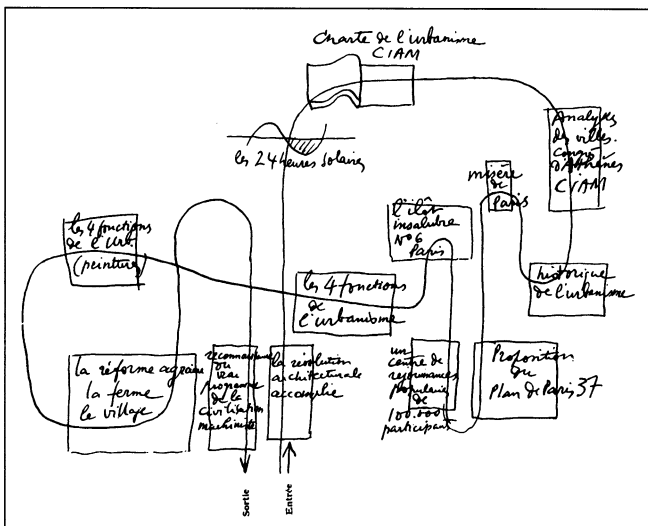 Charte de l'urbanisme
CIAM
les 24 heures solaires
Analyses
des villes.
Congrès
d'Athènes
CIAM
misère
de
Paris
l'ilôt
insalubre
N°6
Paris
les 4 fonctions
de l'Urb.
(peinture)
historique
de l'urbanisme
les 4 fonctions
de
l'urbanisme
la réforme agraire
la ferme
le village
reconnaissance
du
vrai
programme
de la
civilisation
machiniste
la révolution
architecturale
accomplie
un
centre de
réjouissances
populaires
de
100.000
participants
Proposition
du
Plan de Paris 37
Sortie
Entrée